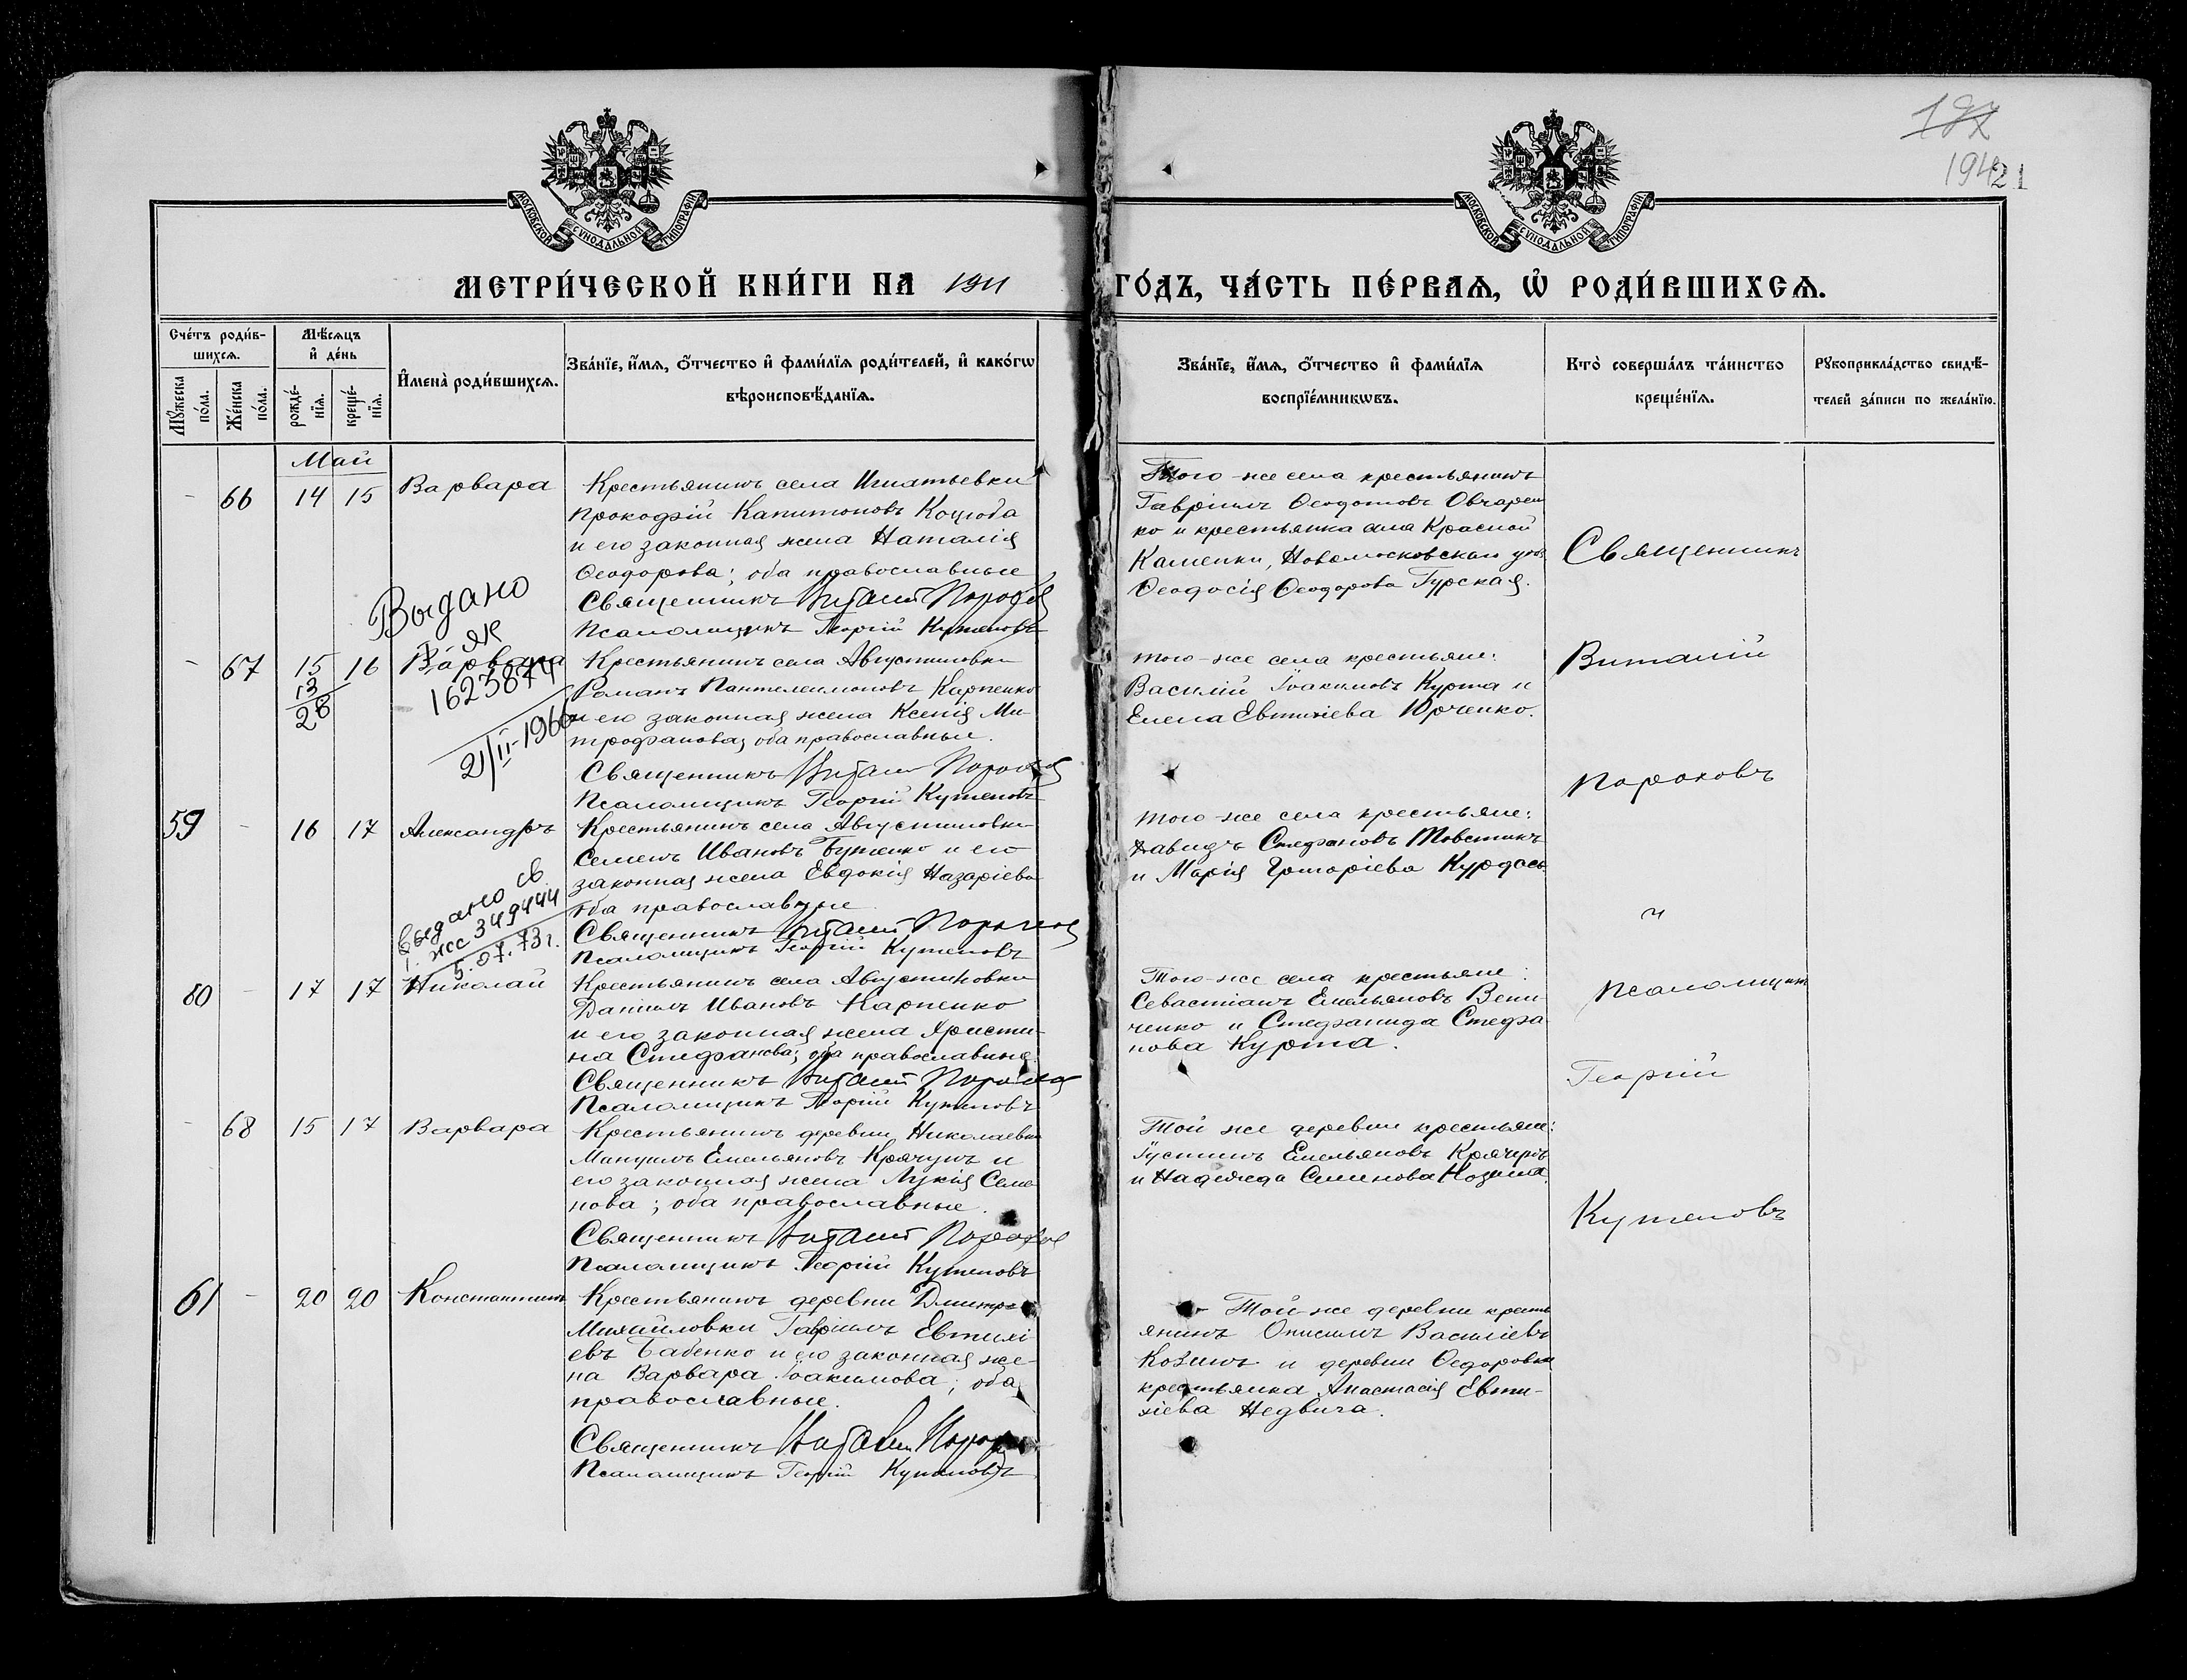 187
194
21
МОСКОВСКОЙ СѴНОДАЛЬНОЙ ТИПОГРАФІИ
МОСКОВСКОЙ СѴНОДАЛЬНОЙ ТИПОГРАФІИ
МЕТРИ́ЧЕСКОЙ КНИ́ГИ НА 1911 ГО́ДЪ, ЧА́СТЬ ПЕ́РВАѦ, Ѡ҆ РОДИ́ВШИХСѦ.
Сче́тъ роди́в-
шихсѧ.
Мꙋ́жеска
по́ла.
Же́нска
по́ла.
Мѣ́сѧцъ
и҆ де́нь
рожде́-
нїѧ.
креще́-
нїѧ.
И҆мена̀ роди́вшихсѧ.
Зва́нїе, и҆́мѧ, ѻ҆́тчество и҆ фами́лїѧ роди́телей, и҆ како́гѡ
вѣроисповѣ́данїѧ.
Зва́нїе, и҆́мѧ, ѻ҆́тчество и҆ фами́лїѧ
воспрїе́мникѡвъ.
Кто̀ соверша́лъ та́инство
креще́нїѧ.
Рꙋкоприкла́дство свидѣ́-
телей за́писи по жела́нїю.
Май
- 66 14 15 Варвара
Крестьянинъ села Игнатьевки
Прокофій Капитоновъ Коцюба
и его законная жена Наталія
Ѳеодорова; оба православные
Священникъ Виталій Пороховъ
Псаломщикъ Георгій Кутеповъ
Того-же села крестьянинъ
Гавріилъ Ѳеодотовъ Овчарен
ко и крестьянка села Красной
Каменки, Новомосковскаго уѣз.
Ѳеодосія Ѳеодорова Гурская.
Выдано
І - ЯК
1623874
21/II-1966
- 67 15 16 Варвара
13
28
Крестьянинъ села Августиновки
Романъ Пантелеимоновъ Карпенко
и его законная жена Ксенія Ми-
трофанова, оба православные.
Священникъ Виталій Пороховъ
Псаломщикъ Георгій Кутеповъ
того-же села крестьяне:
Василій Іоакимовъ Курта и
Елена Евтихіева Юрченко.
59 - 16 17 Александръ
Крестьянинъ села Августиновки
Семенъ Ивановъ Бутенко и его
законная жена Евдокія Назаріева
оба православные
Священникъ Виталій Пороховъ
Псаломщикъ Георгій Кутеповъ
того-же села крестьяне:
Давидъ Стефановъ Товстикъ
и Марія Григоріева Курдась.
выдано св.
І. жс 349444
5.07.73 г.
60 - 17 17 Николай
Крестьянинъ села Августиновки
Даніилъ Ивановъ Карпенко
и его законная жена Христи-
на Стефанова; оба православные
Священникъ Виталій Пороховъ
Псаломщикъ Георгій Кутеповъ
Того-же села крестьяне:
Севастіанъ Емельяновъ Вени-
ченко и Стефанида Стефа-
нова Курта.
- 68 15 17 Варвара
Крестьянинъ деревни Николаевки
Мануилъ Емельяновъ Крячунъ и
его законная жена Лукія Семе-
нова; оба православные.
Священникъ Виталій Пороховъ
Псаломщикъ Георгій Кутеповъ
Той же деревни крестьяне:
Іустинъ Емельяновъ
и Надежда Семенова Козина.
61 - 20 20 Константинъ
Крестьянинъ деревни Дмитро-
Михайловки Гавріилъ Евтихі
евъ Бабенко и его законная же-
на Варвара Іоакимова; оба
православные.
Священникъ Виталій Пороховъ
Псаломщикъ Георгій Кутеповъ
Той-же деревни кресть
янинъ Онисимъ Василіевъ
Козинъ и деревни Ѳедоровки
крестьянка Анастасія Евти-
хіева Недвига.
Священникъ
Виталій
Пороховъ
и
псаломщикъ
Георгій
Кутеповъ